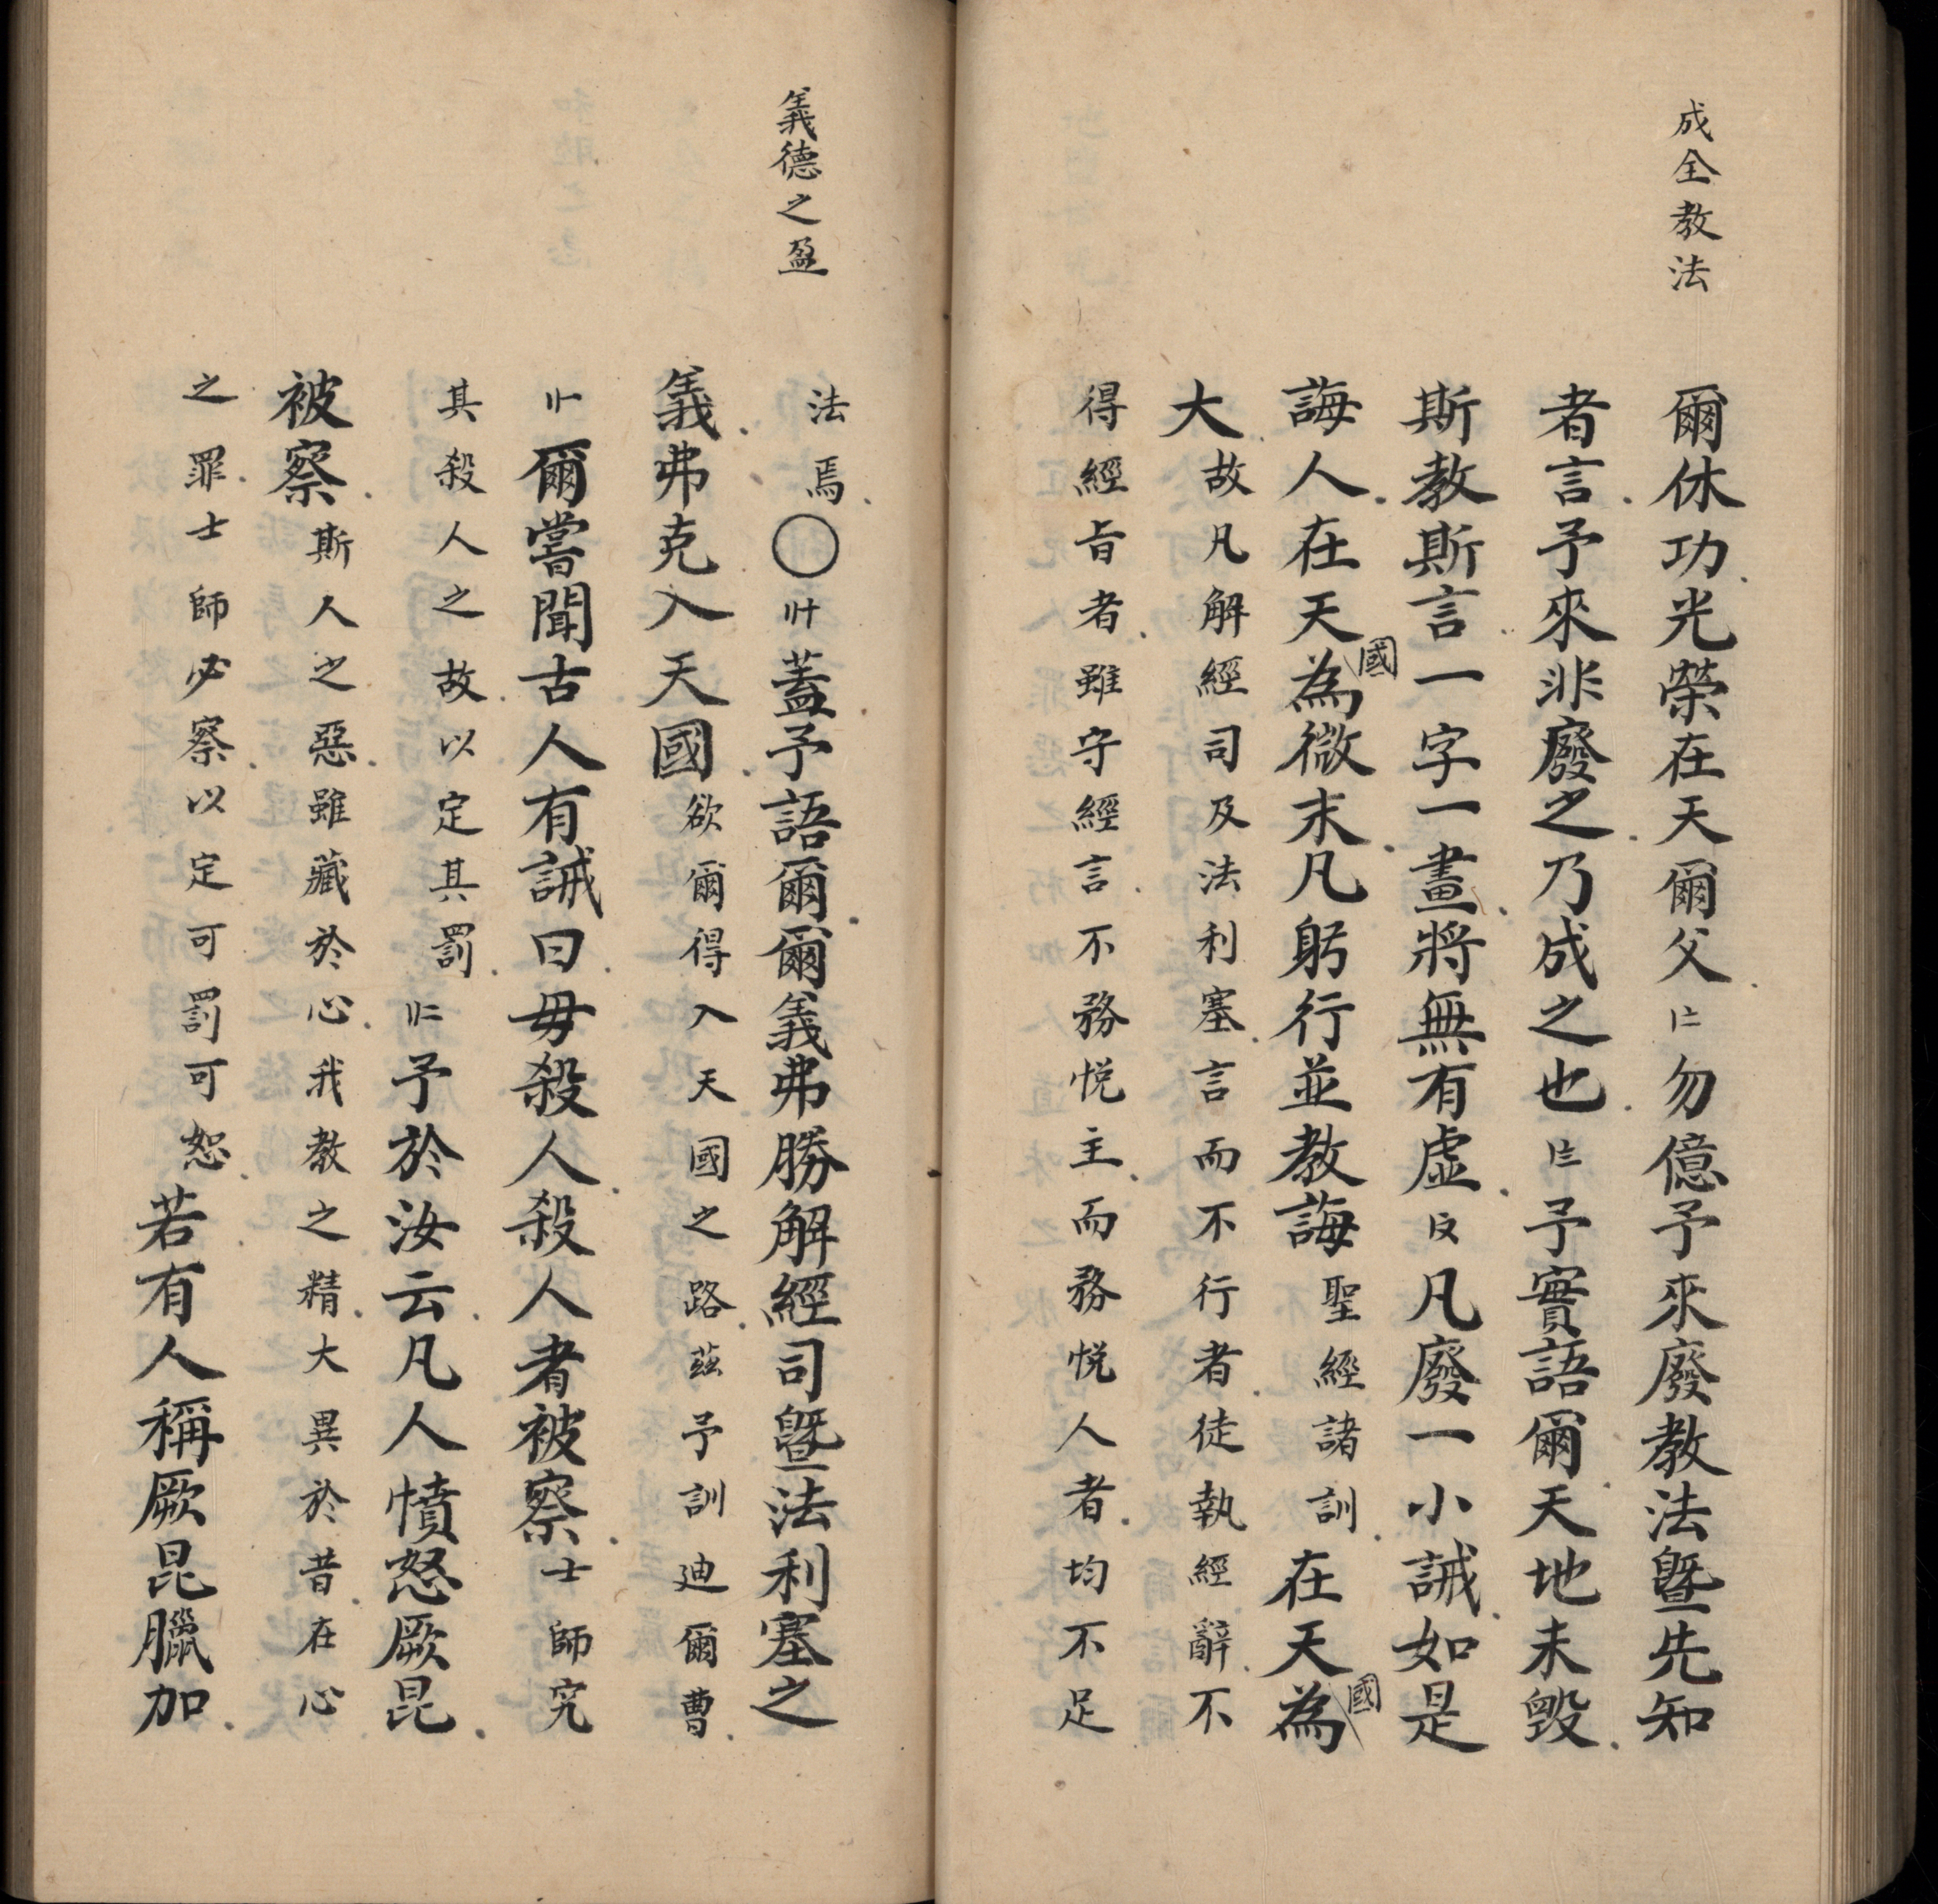 成全教法
爾休功光榮在天爾父〡二勿億予來廢教法曁先知
者言予來非廢之乃成之也〡三予實語爾天地未毀
斯教斯言一字一畫將無有虛凡廢一小誡如是
誨人在天國為微末凡躬行並教誨聖經諸訓在天國為
大故凡解經司及法利塞言而不行者徒執經辭不
得經旨者雖守經言不務悅主而務悅人者均不足
義德之盈
法焉〇蓋予語爾爾義弗勝解經司曁法利塞之
義弗克入天國欲爾得入天國之路茲予訓迪爾曹
爾嘗聞古人有誡曰毋殺人殺人者被察士師究
其殺人之故以定其罰予於汝云凡人憤怒厥昆
被察斯人之惡雖藏於心我教之精大異於昔在心
之罪士師必察以定可罰可恕若有人稱厥昆臘加